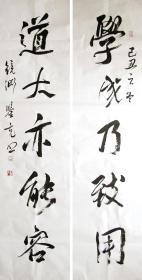 學成乃致用
己丑之冬
道大亦能容
鏡湖